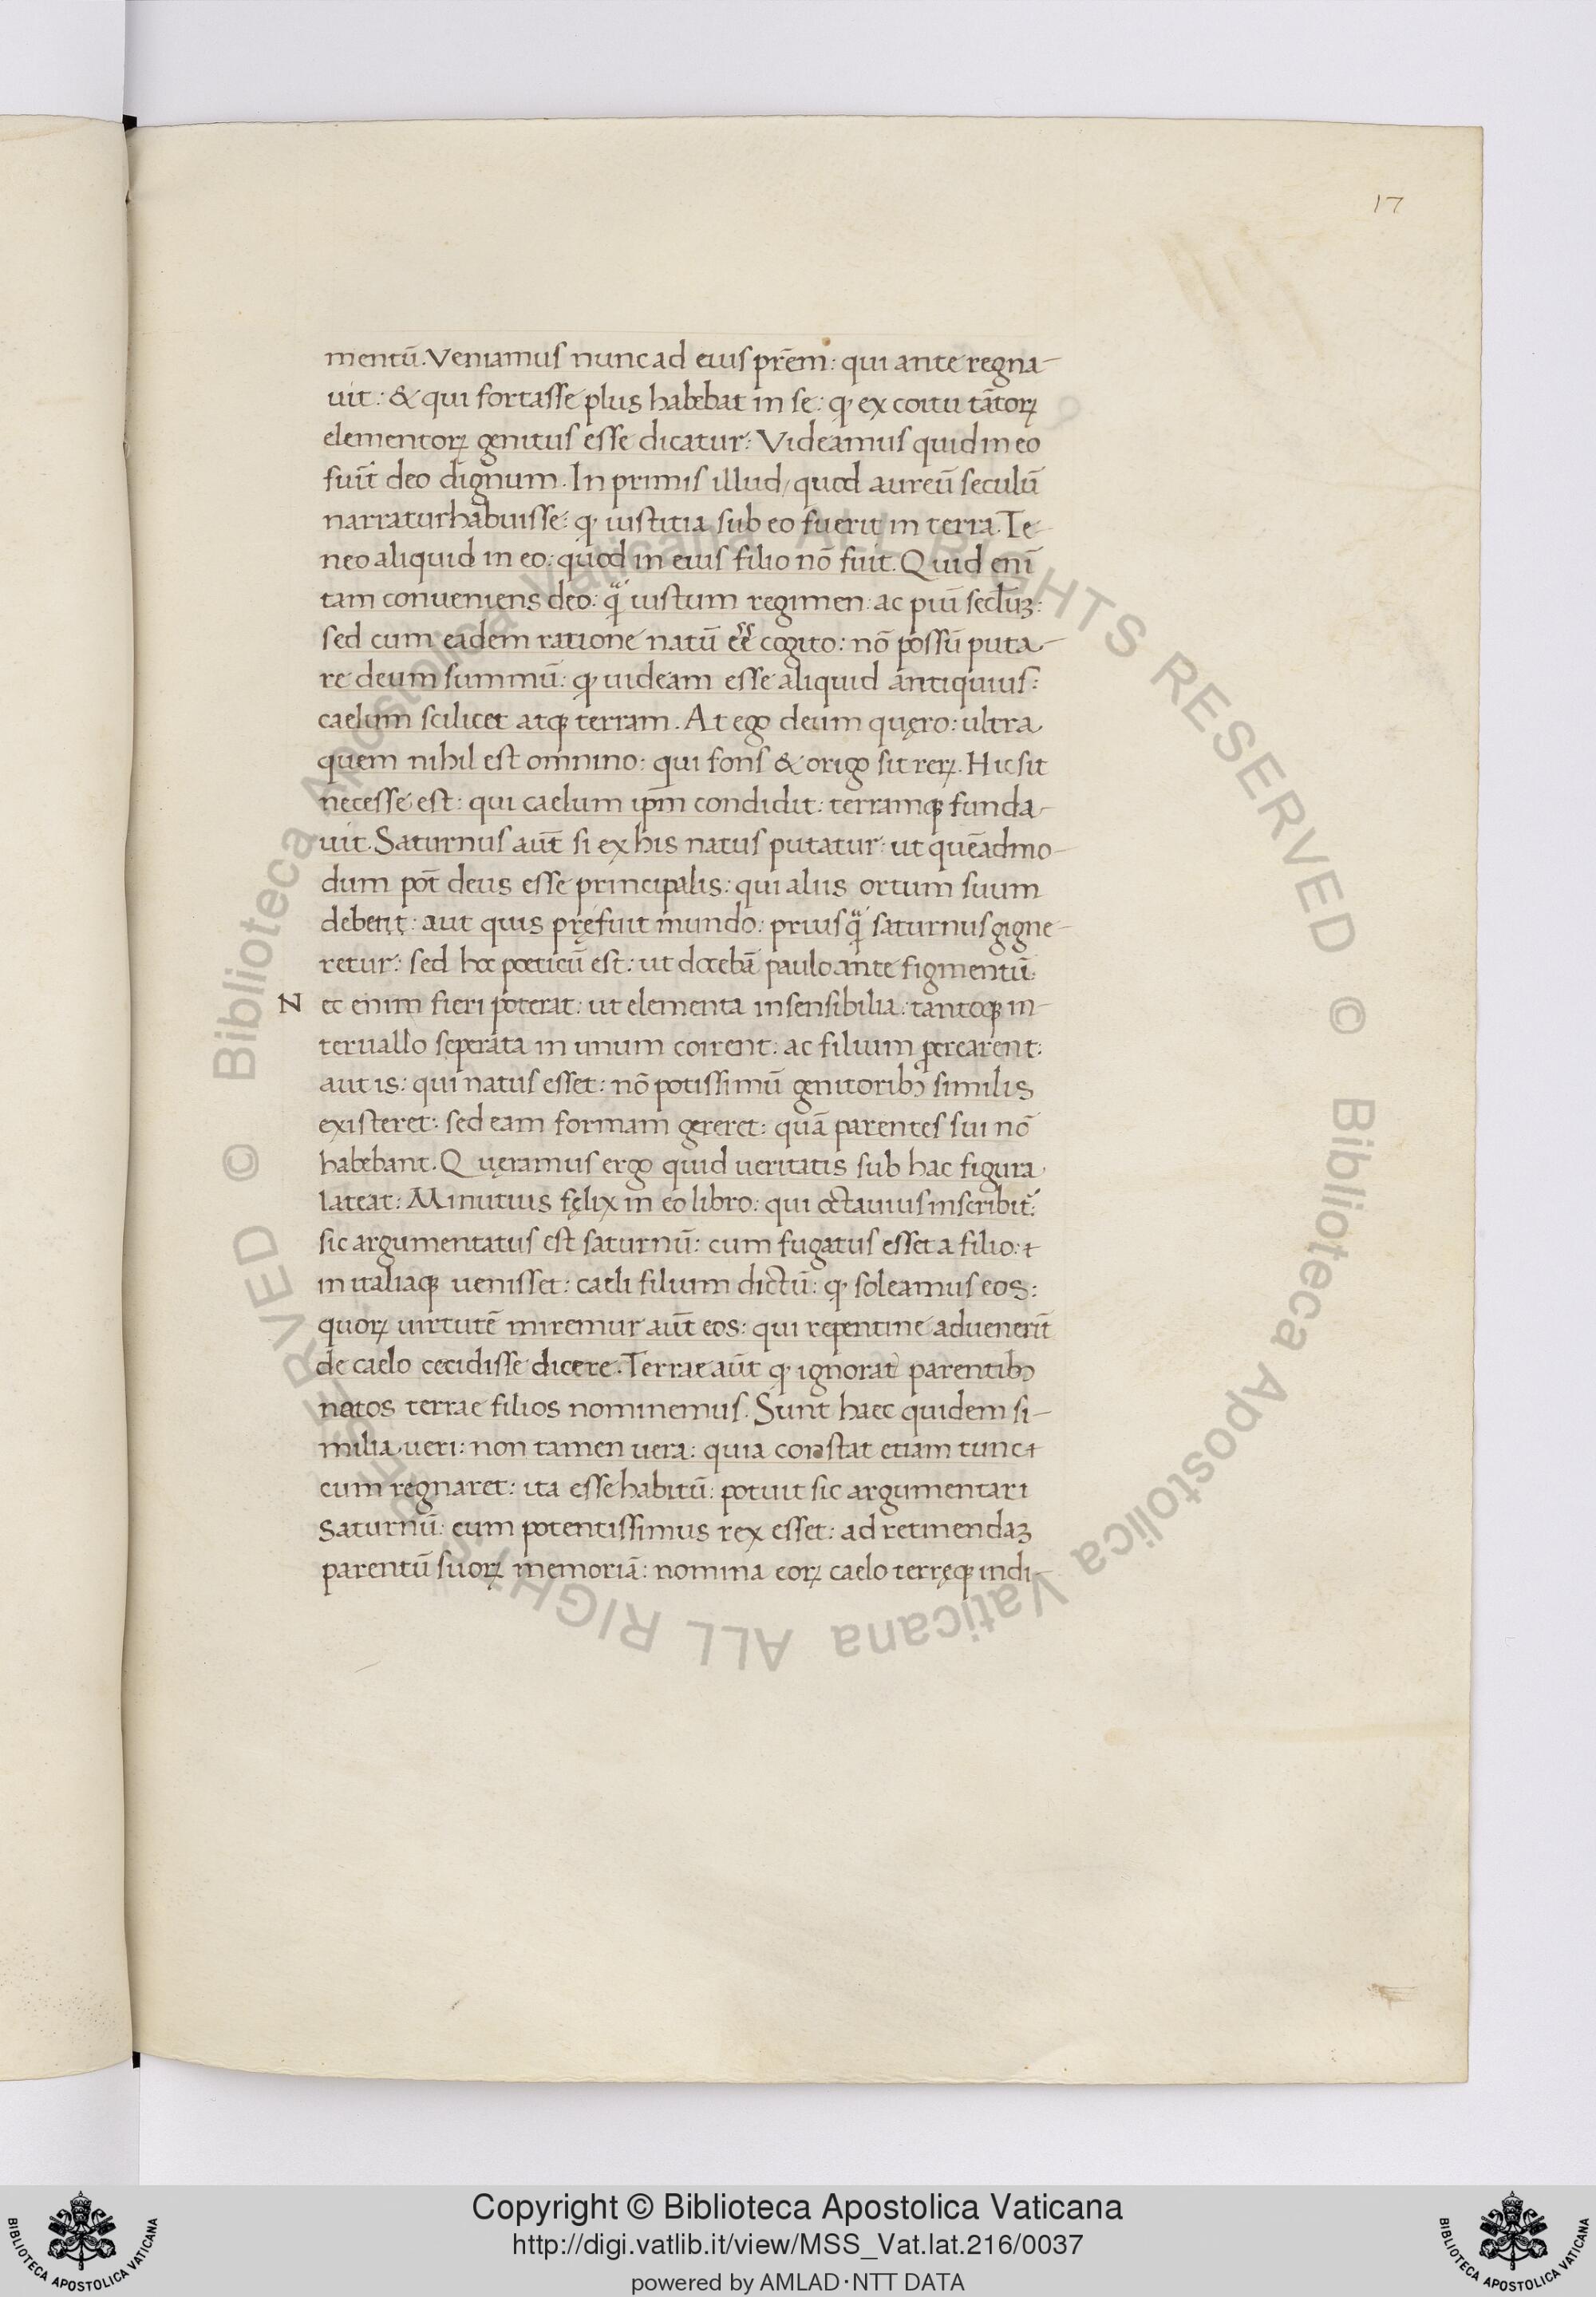 17
mentū. Veniamus nunc ad eius prēm: qui ante regna-
uit: & qui fortasse plus habebat in se: ꝙ ex coitu tātoꝝ
elementoꝝ genitus esse dicatur: Videamus quid in eo
fuit deo dignum. In primis illud, quod aureū seculū
narratur habuisse: ꝙ iustitia sub eo fuerit in terra. Te-
neo aliquid in eo: quod in eius filio nō fuit. Quid enī
tam conueniens deo: qͣ̄ iustum regimen: ac piū secl̄uꝫ:
sed cum eadem ratione natū ēē cogito: nō possū puta-
re deum summū: ꝙ uideam esse aliquid antiquius:
caelum scilicet atqꝫ terram. At ego deum quęro: ultra
quem nihil est omnino: qui fons & origo sit reꝝ. Hic sit
necesse est: qui caelum ip̄m condidit: terramqꝫ funda-
uit. Saturnus aūt si ex his natus putatur: ut quēadmo-
dum pōt deus esse principalis: qui aliis ortum suum
debeat: aut quis pręfuit mundo: priusqͣ̄ saturnus gigne-
retur: sed hoc poeticū est: ut docebā paulo ante figmentū.
N ec enim fieri poterat: ut elementa insensibilia: tantoqꝫ in-
teruallo seperata in unum coirent: ac filium ꝓcrearent:
aut is: qui natus esset: nō potissimū genitoribꝰ similis
existeret: sed eam formam gereret: quā parentes sui nō
habebant. Quęramus ergo quid ueritatis sub hac figura
lateat: Minutius fęlix in eo libro: qui octauius inscribit᷑:
sic argumentatus est saturnū: cum fugatus esset a filio: ⁊
in italiaqꝫ uenisset: caeli filium dictū: ꝙ soleamus eos:
quoꝝ uirtutē miremur aūt eos: qui repentine aduenerūt
de caelo cecidisse dicere. Terrae aūt ꝙ ignorat parentibꝰ
natos terrae filios nominemus. Sunt haec quidem si-
milia ueri: non tamen uera: quia constat etiam tunc ⁊
cum regnaret: ita esse habitū: potuit sic argumentari
Saturnū: cum potentissimus rex esset: ad retinendaꝫ
parentū suoꝝ memoriā: nomina eoꝝ caelo terręqꝫ indi-
Copyright © Biblioteca Apostolica Vaticana
http://digi.vatlib.it/view/MSS_Vat.lat.216/0037
powered by AMLAD·NTT DATA
BIBLIOTECA APOSTOLICA VATICANA
BIBLIOTECA APOSTOLICA VATICANA